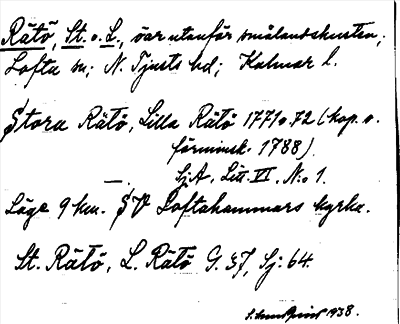 Rätö, St. o. L., öar utanför smålandskusten;
Lofta sn; N. Tjusts hd; Kalmar l.
Stora Rätö, Lilla Rätö 1771 o. 72 (kop. o.
förminsk. 1788).
SjA, Litt. VI. N:o 1.
Läge 9 km. SV Loftahammars kyrka.
St. Rätö, L. Rätö G. 37, Sj: 64.
1938.